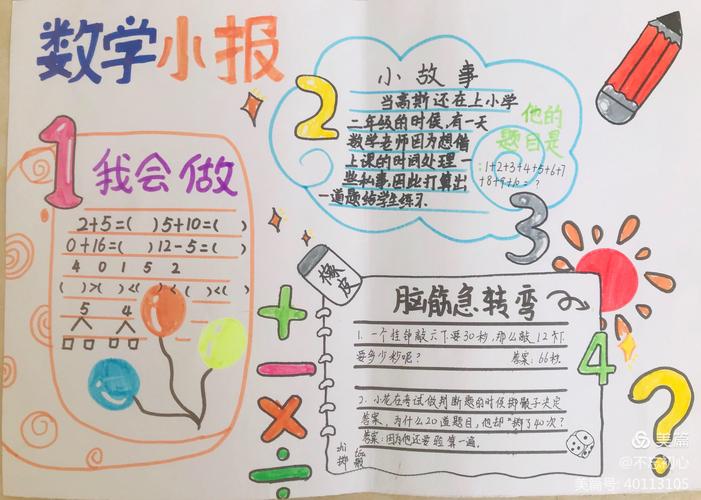 数学小报
1
我会做
2+5=( )5+10=( )
0+16=( )12-5=( )
4 0 1 5 2
( )>( )<( )<( )<( )
5 4
2
小故事
当高斯还在上小学
二年级的时候,有一天
数学老师因为想借
上课的时间处理一
些私事,因此打算出
一道题给学生练习.
他的
题目是
:1+2+3+4+5+6+7
+8+9+10=?
3
橡皮
脑筋急转弯
1.一个挂钟敲六下要30秒,那么敲12下
要多少秒呢? 答案:66秒.
2.小龙在考试做判断题的时候掷骰子决定
答案,为什么20道题目,他却"掷了40次?
答案:因为他还要验算一遍。
zhì
掷
tóu
骰
+
-
×
÷
4
?
美篇
@不忘初心
美篇号: 40113105